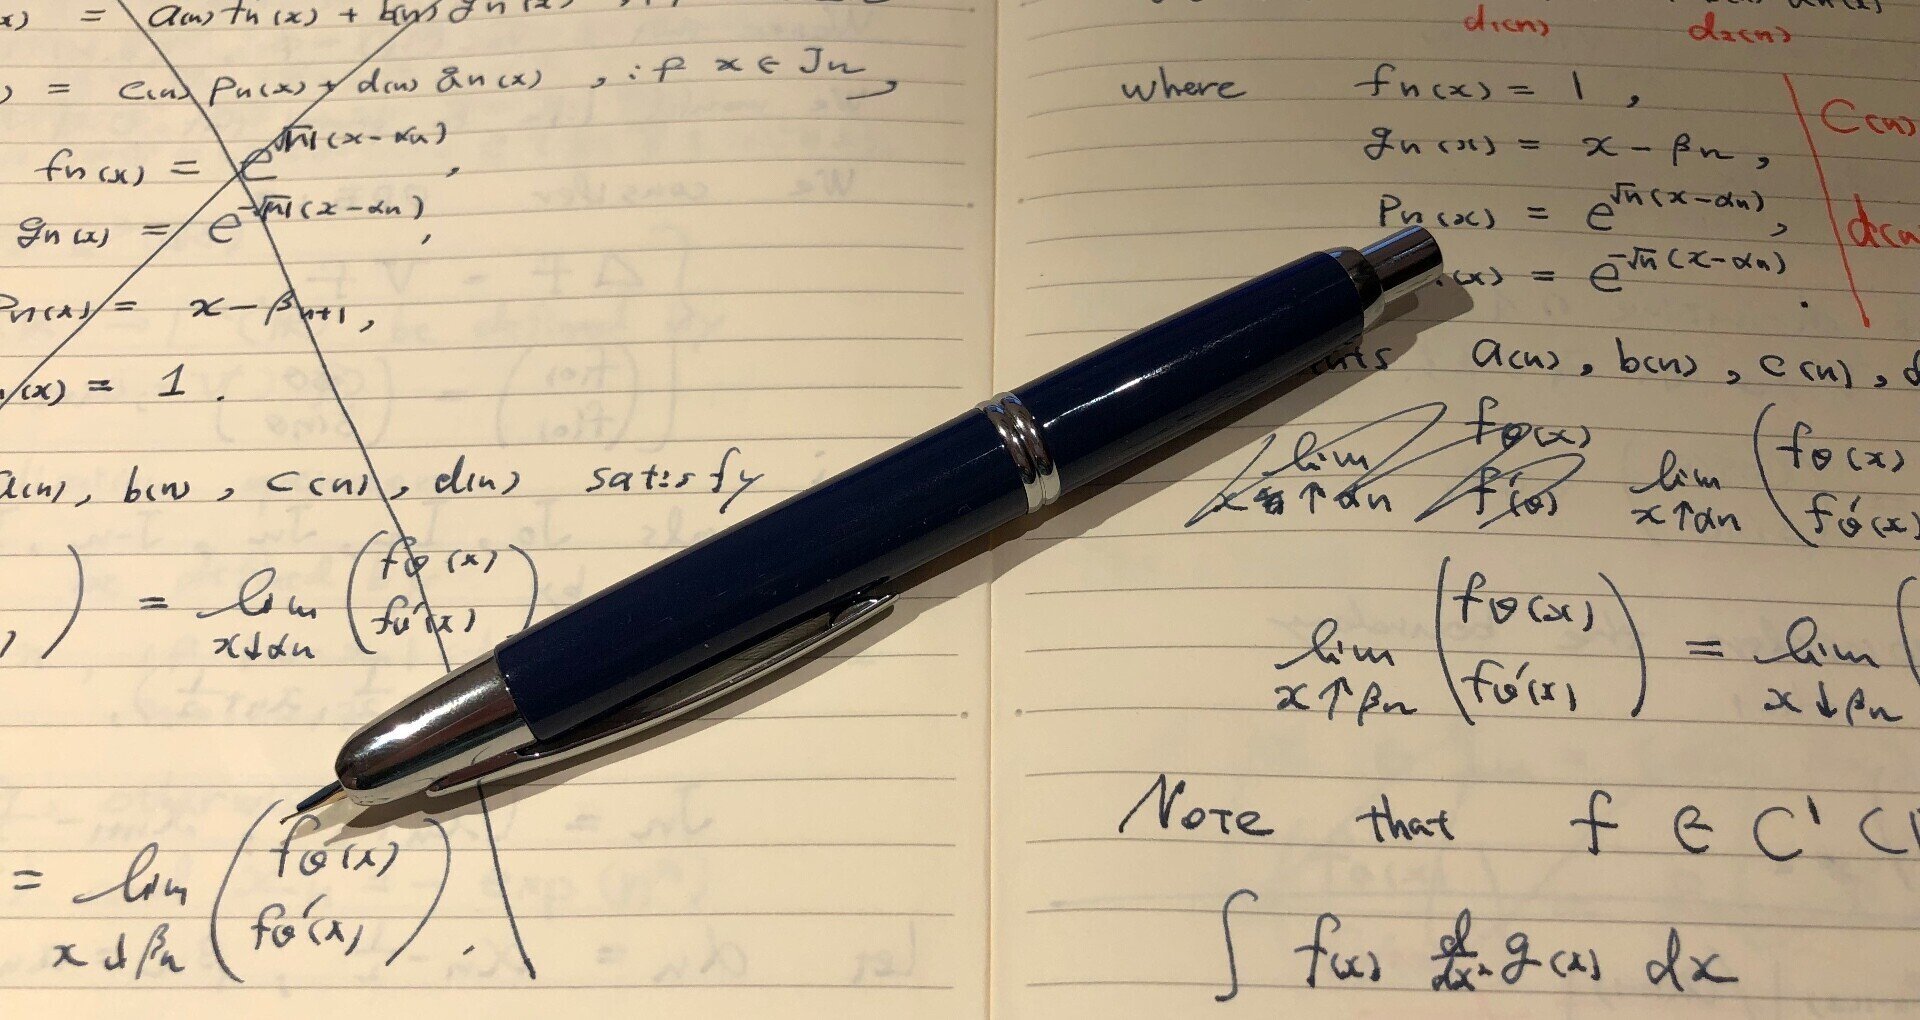 x) = a(n) fn(x) + b(n) gn(x)
) = c(n) pn(x) + d(n) qn(x) , if x ∈ Jn ,
fn(x) = e^{√|n|(x-αn)} ,
gn(x) = e^{-√|n|(x-αn)} ,
Pn(x) = x - βn+1 ,
(x) = 1 .
a(n), b(n), c(n), d(n) satisfy
) = lim x↓αn (fθ(x) fθ'(x))
= lim x↓βn (fθ(x) fθ'(x)) .
d1(n) d2(n)
where fn(x) = 1 ,
gn(x) = x - βn ,
Pn(x) = e^{√n(x-αn)} ,
(x) = e^{-√n(x-αn)} .
C(n)
d(n
nts a(n), b(n), c(n), d
lim x↑αn fθ(x) f'(θ) lim x↑αn (fθ(x) fθ'(x)
lim x↑βn (fθ(x) fθ'(x)) = lim x↓βn (
Note that f ∈ C¹ (
∫ f(x) d/dx² g(x) dx